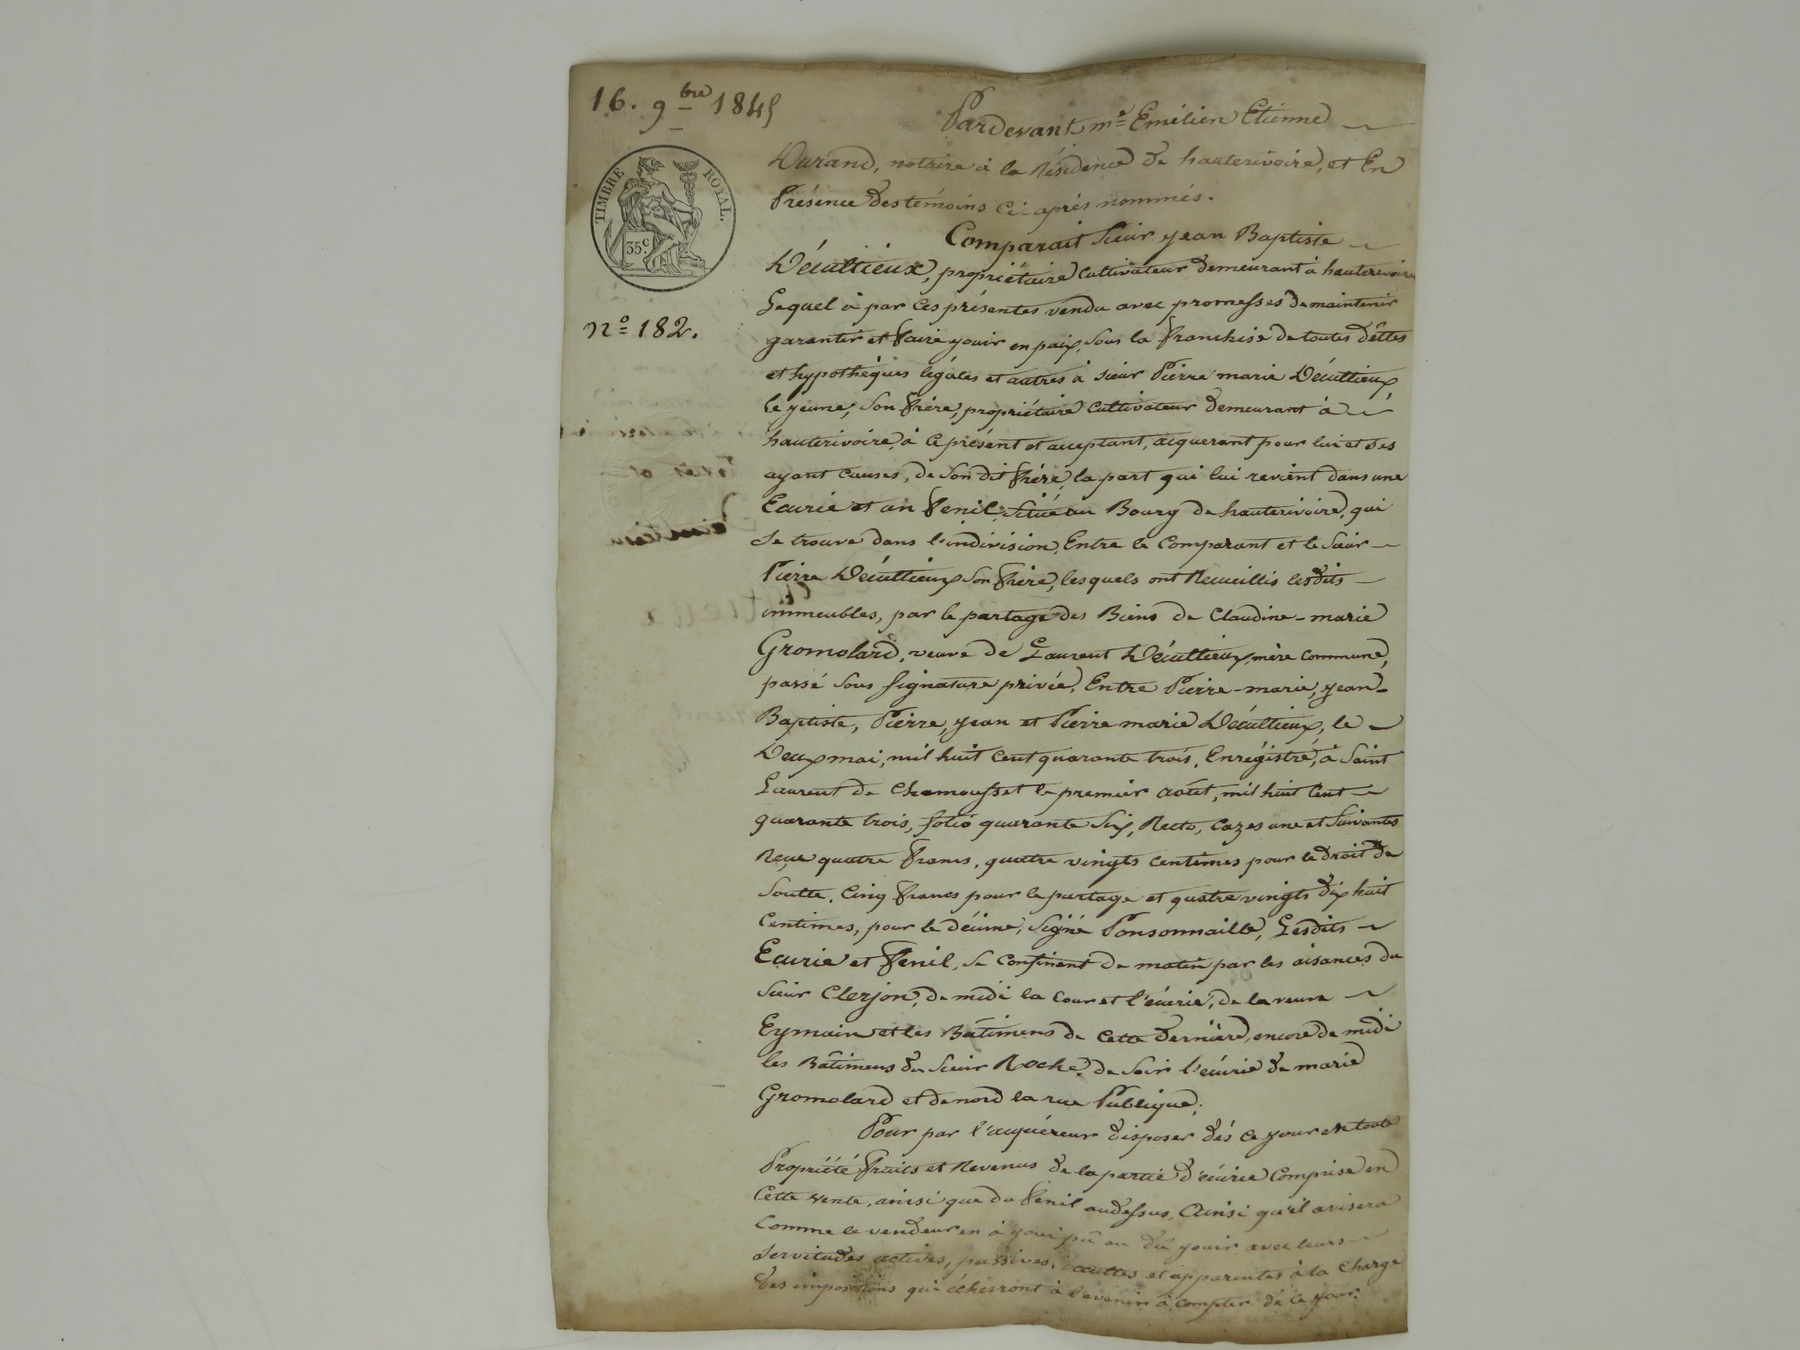 16. 9bre 1845
TIMBRE ROYAL.
35c.
no 182.
Pardevant, me Emilien Etienne
Durand, notaire à la Résidence de hauterivoire, et En
Présence des témoins Ci-après nommés.
Comparait Sieur jean Baptiste
Décultieux, propriétaire Cultivateur demeurant à hauterivoire
Lequel à par Ces présentes vendu avec promesses de maintenir
garantir et Faire jouir en paix, Sous la Franchise de toutes dêttes
et hypothèques légales et autres à sieur Pierre marie Décultieux,
le jeune, Son Frère, propriétaire Cultivateur demeurant à
hauterivoire, à Ce présent et acceptant, acquerant pour lui et ses
ayant Causes, de Son dit Frère, la part qui lui revient dans une
Ecurie et un Fenil, Situé au Bourg de hauterivoire, qui
Se trouve dans l'indivision, Entre le Comparant et le Sieur
Pierre Décultieux Son Frère, lesquels ont Recueillis lesdits
immeubles, par le partage des Biens de Claudine-marie
Gromolard, veuve de Laurent Décultieux, mère Commune,
passé Sous Signature privée, Entre Pierre-marie, jean-
Baptiste, Pierre, jean et Pierre marie Décultieux, le
Deux mai, mil huit Cent quarante trois, Enrégistré, à Saint
Laurent de Chamousset le premier août, mil huit Cent
quarante trois, folio quarante Six, Recto, Cazes une et Suivantes
Reçu quatre Francs, quatre vingts Centimes pour le droit de
Soulte, Cinq Francs pour le partage et quatre vingts dix huit
Centimes, pour le décime, Signé Ponsonnaille, Lesdits
Ecurie et Fenil, Se Confinent de matin par les aisances du
Sieur Clerjon, de midi la Cour et l'écurie, de la veuve
Eymain et les Bâtimens de Cette dernière, encore de midi
les Bâtimens du Sieur Roche, de Soir l'écurie de marie
Gromolard et de nord la rue Publique;
Pour par l'acquéreur disposer dés Ce jour en toute
Propriété Fruits et Revenus de la partie d'écurie Comprise en
Cette vente, ainsi que du Fenil audessus, Ainsi qu'il avisera
Comme le vendeur en à joui pû ou dû jouir, avec leurs
Servitudes actives, passives, occultes et apparentes à la Charge
des impositions qui écherront à l'avenir à Compter de Ce jour.